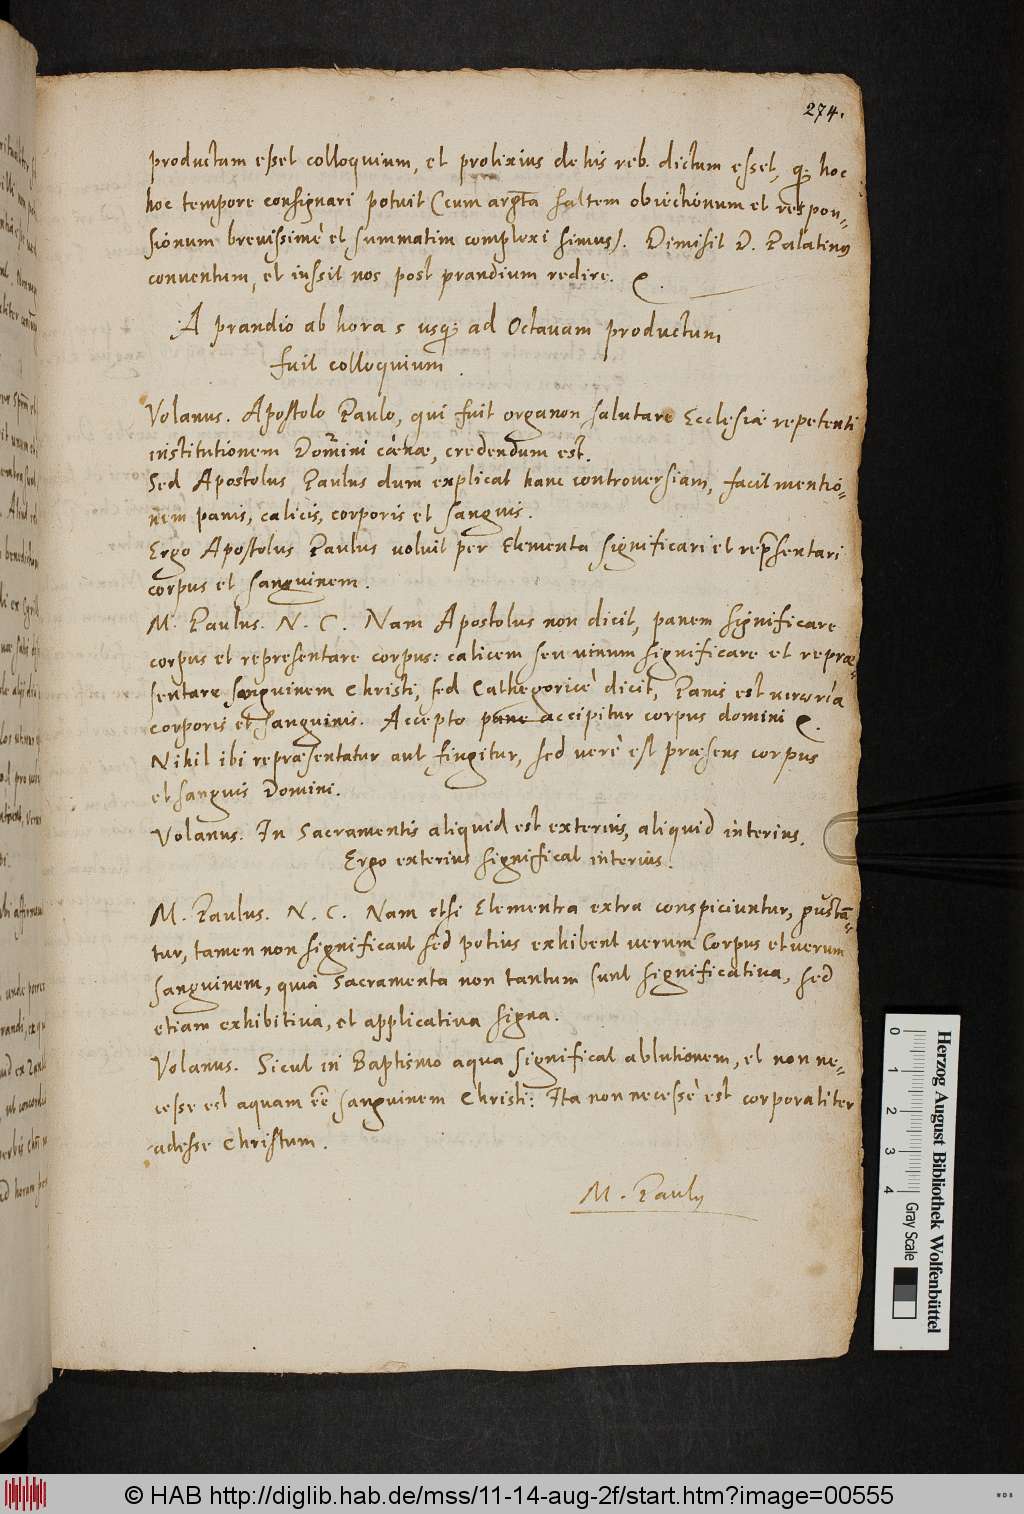 274.
productum esset colloquium, et prolixius de his reb. dictum esset, q; hoc
hoc tempore consignari potuit (cum argta saltem obiectionum et respon=
sionum brevissimè et summatim complexi simus). Dimisit D. Palatinus
conuentum, et iussit nos post prandium redire.
A prandio ab hora 5 usq; ad Octauam productum
fuit colloquium.
Volanus. Apostolo Paulo, qui fuit organon salutare Ecclesiæ repetenti
institutionem Domini cœnæ, credendum est.
Sed Apostolus Paulus dum explicat hanc controuersiam, facit mentio=
nem panis, calicis, corporis et sanguis.
Ergo Apostolus Paulus uoluit per Elementa significari et repræsentari
corpus et sanguinem.
M. Paulus. N. C. Nam Apostolus non dicit, panem significare
corpus et representare corpus: calicem seu uinum significare et repræ=
sentare sanguinem Christi, sed Cathegoricè dicit, Panis est κοινωνία
corporis et sanguinis. Accepto pane accipitur corpus domini
Nihil ibi repræsentatur aut fingitur, sed verè est præsens corpus
et sanguis Domini.
Volanus. In Sacramentis aliquid est exterius, aliquid interius.
Ergo exterius significat interius.
M. Paulus. N. C. Nam etsi Elementa extra conspiciuntur, gustan=
tur, tamen non significant sed potius exhibent uerum Corpus et uerum
sanguinem, quia Sacramenta non tantum sunt significatiua, sed
etiam exhibitiua, et applicatiua signa.
Volanus. Sicut in Baptismo aqua significat ablutionem, et non ne=
cesse est aquam eẽ sanguinem Christi: Ita non necesse est corporaliter
adesse Christum.
M. Paulus
0 1 2 3 4
Gray Scale
Herzog August Bibliothek Wolfenbüttel
© HAB http://diglib.hab.de/mss/11-14-aug-2f/start.htm?image=00555